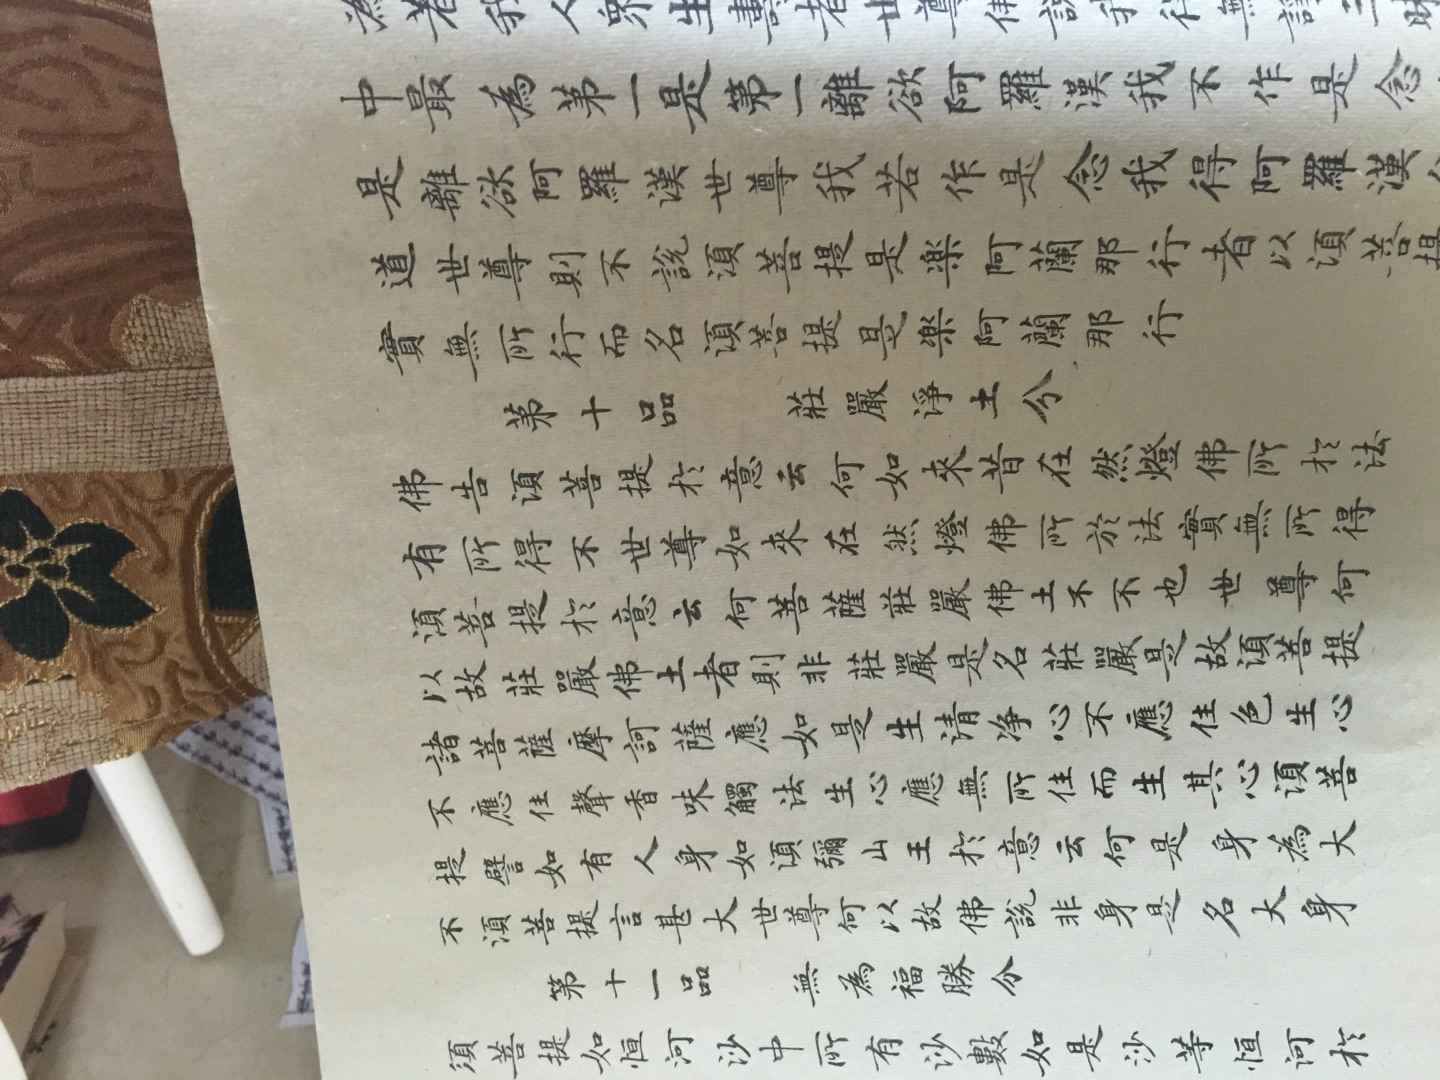 為著我人眾生壽者世尊佛說我得無諍三昧
中最為第一是第一離欲阿羅漢我不作是念
是離欲阿羅漢世尊我若作是念我得阿羅漢
道世尊則不說須菩提是楽阿蘭那行者以須菩提
實無所行而名須菩提是楽阿蘭那行
第十品 莊嚴淨土分
佛告須菩提於意云何如來昔在然燈佛所於法
有所得不世尊如來在然燈佛所於法實無所得
須菩提於意云何菩薩莊嚴佛土不不也世尊何
以故莊嚴佛土者則非莊嚴是名莊嚴是故須菩提
諸菩薩摩訶薩應如是生清淨心不應住色生心
不應住聲香味觸法生心應無所住而生其心須菩
提譬如有人身如須彌山王於意云何是身為大
不須菩提言甚大世尊何以故佛說非身是名大身
第十一品 無為福勝分
須菩提如恒河沙中所有沙數如是沙等恒河於